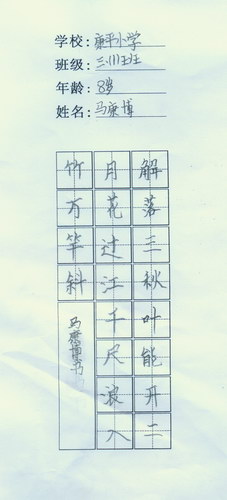 学校：康平小学
班级：三(1)班
年龄：8岁
姓名：马康博
解落三秋叶能开二
月花过江千尺浪入
竹万竿斜
马康博书